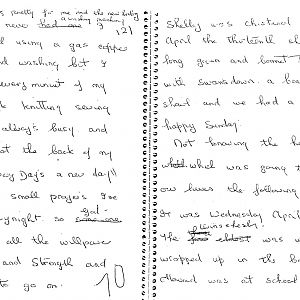 pretty for me and the new baby
a washing machine
never had one 9
121
d using a gas copper
nd washing but I
every minute of my
knitting sewing
always busy and
t the back of my
ery Day's a new day!!
small prayers I've
God
erynight. so someone
all the willpower
and Strength and
to go on. 10
Shelly was christened
April the thirteenth
long gown and bonnet
with swansdown. a
shawl and we had a
happy Sunday.
Not knowing the h
which was going t
our lives the following
It was Wednesday April
twins eldest
The eldest was
wrapped up in the b
was at school